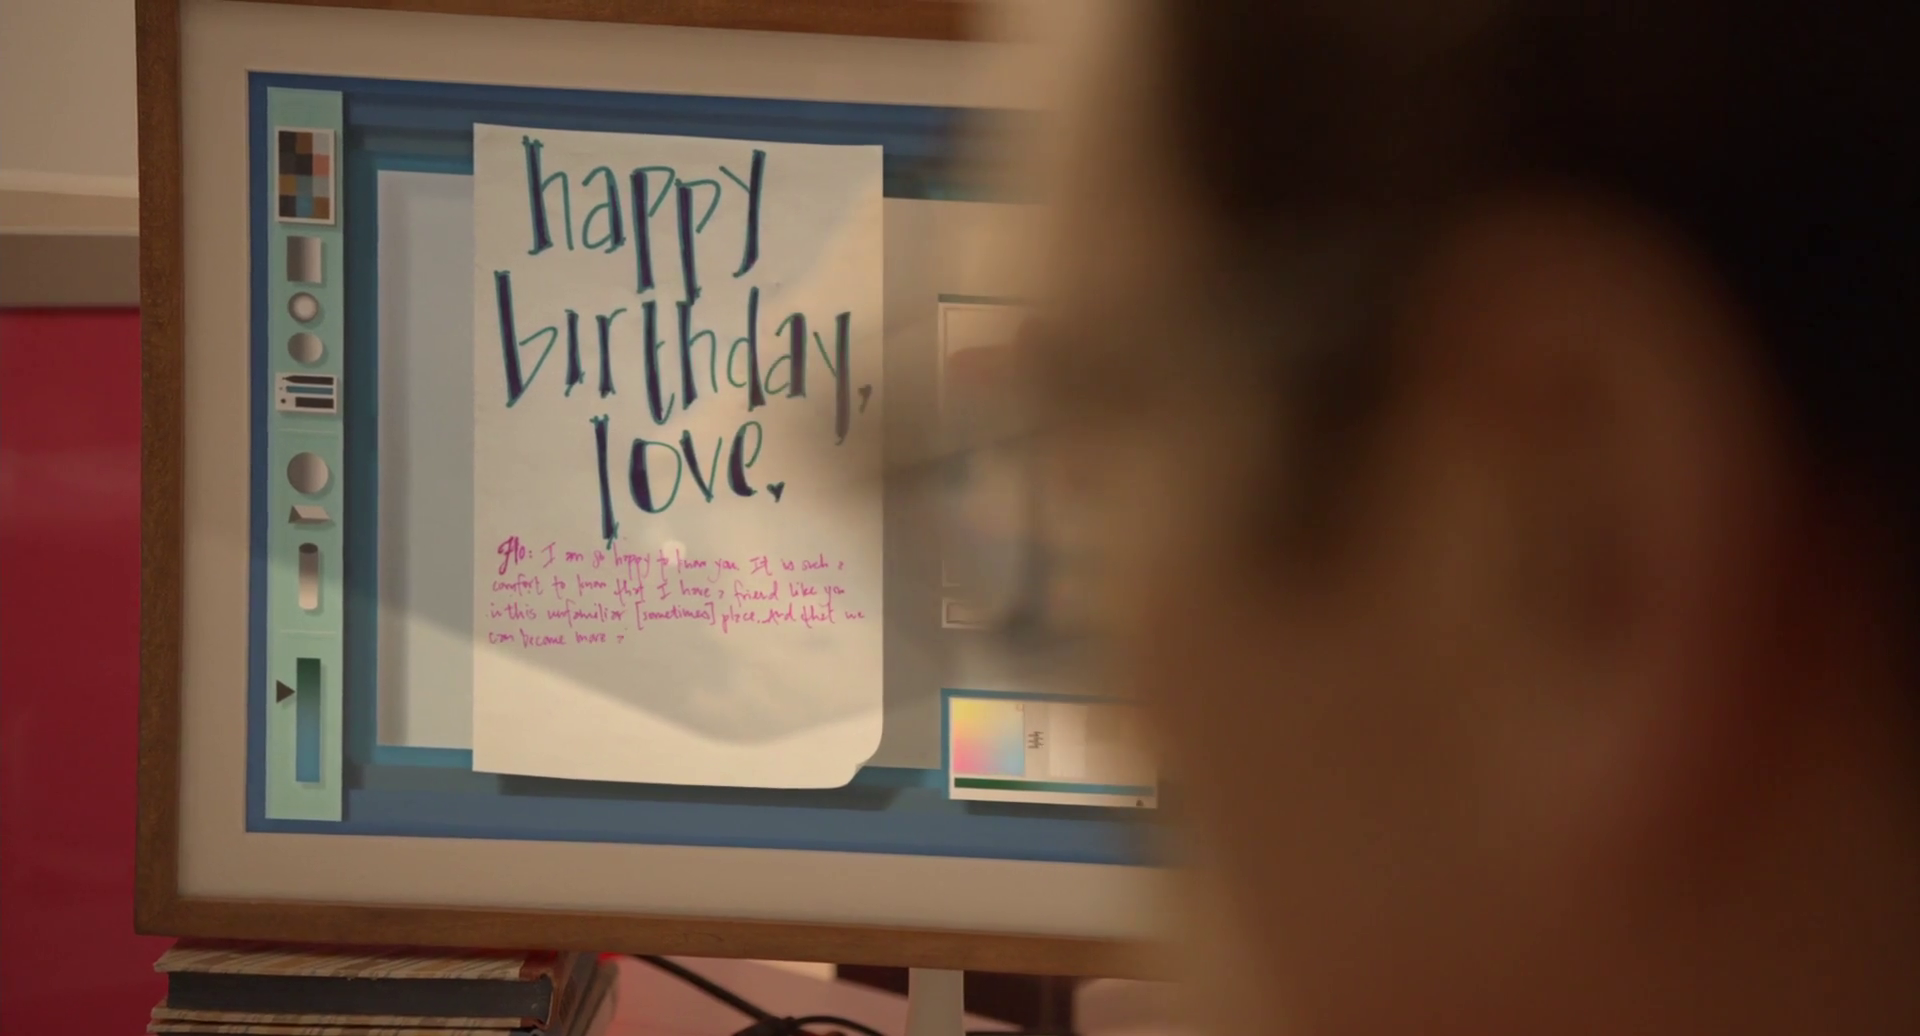 happy
birthday,
love.
Flo: I am so happy to know you. It is such a
comfort to know that I have a friend like you
in this unfamiliar [sometimes] place. And that we
can become more